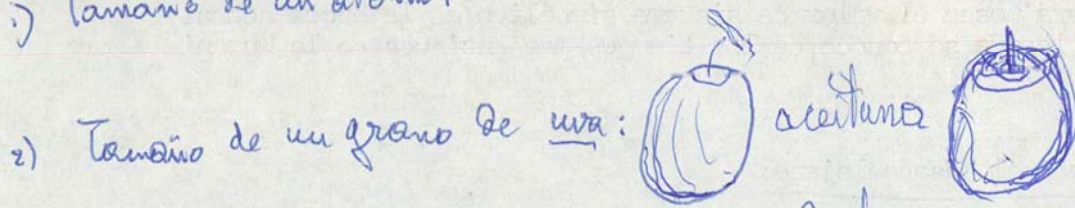 1) Tamaño de un
2) Tamaño de un grano de uva: aceituna